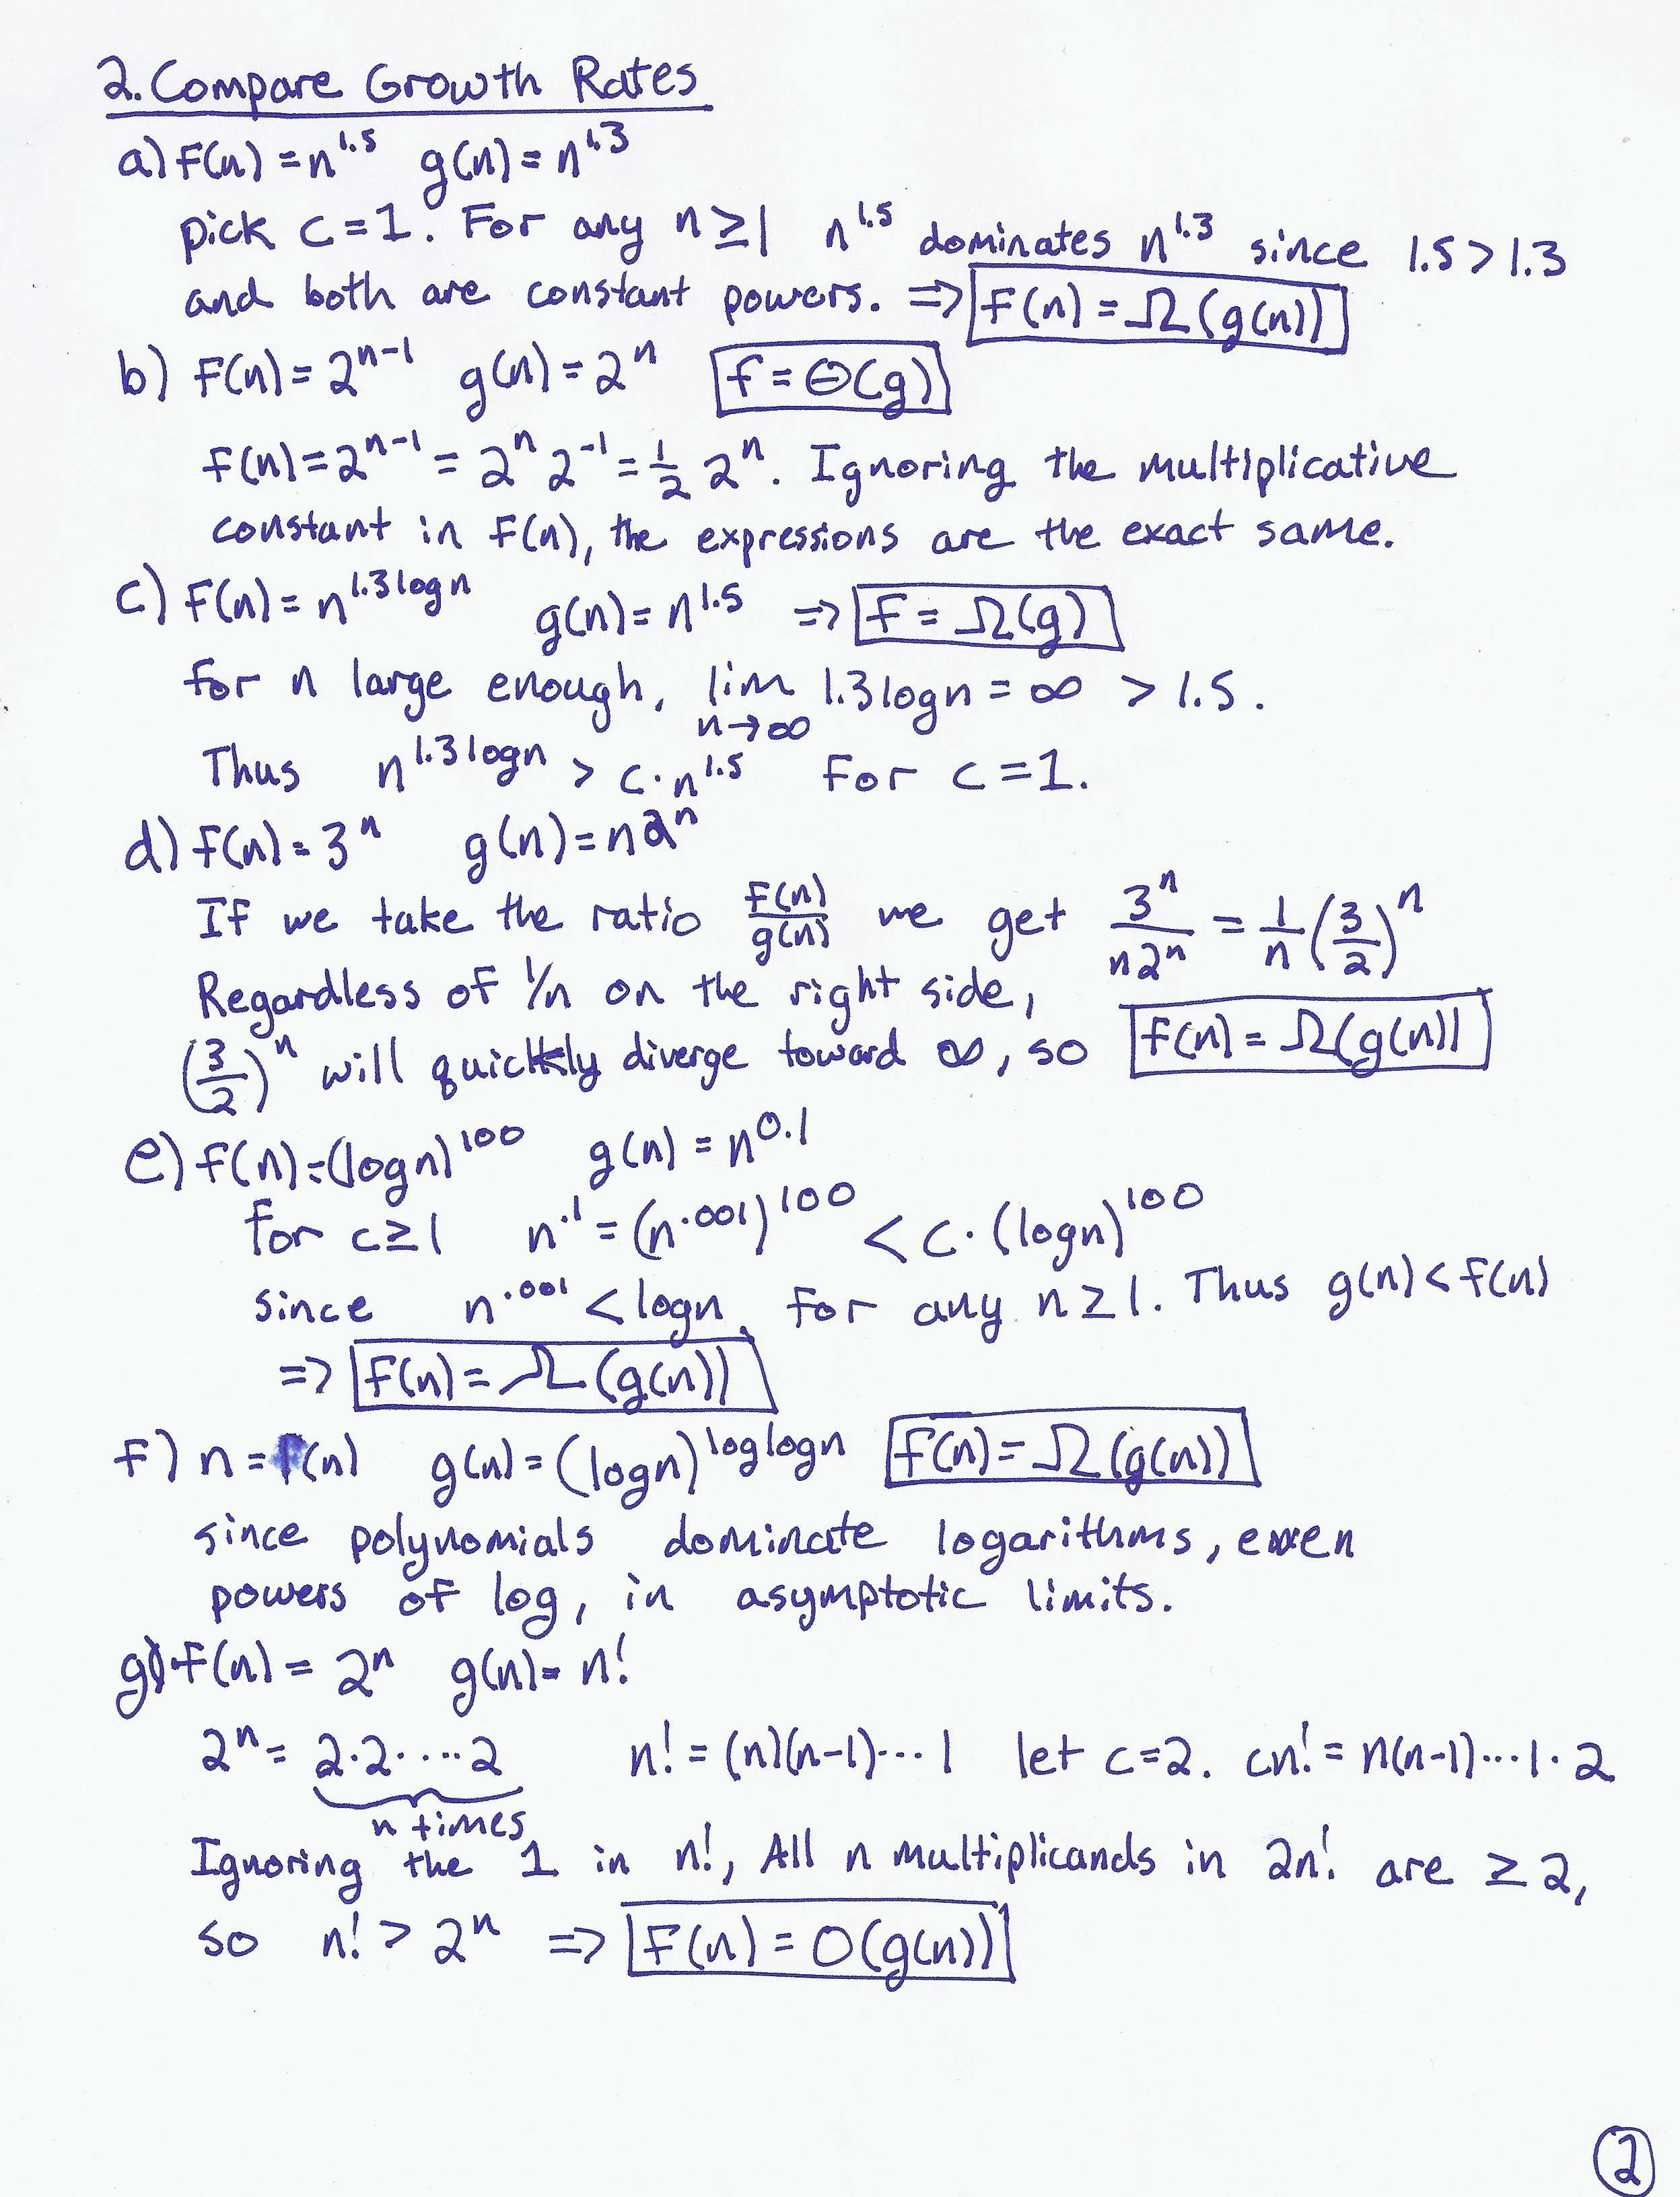 2. Compare Growth Rates
a) f(n) = n^1.5   g(n) = n^1.3
pick c = 1. For any n ≥ 1 n^1.5 dominates n^1.3 since 1.5 > 1.3
and both are constant powers. => f(n) = Ω(g(n))
b) f(n) = 2^n-1   g(n) = 2^n   f = Θ(g)
f(n) = 2^n-1 = 2^n 2^-1 = 1/2 2^n. Ignoring the multiplicative
constant in f(n), the expressions are the exact same.
c) f(n) = n^1.3logn   g(n) = n^1.5 => f = Ω(g)
for n large enough, lim n→∞ 1.3logn = ∞ > 1.5.
Thus n^1.3logn > c·n^1.5 for c = 1.
d) f(n) = 3^n   g(n) = n2^n
If we take the ratio f(n)/g(n) we get 3^n/n2^n = 1/n (3/2)^n
Regardless of 1/n on the right side,
(3/2)^n will quickly diverge toward ∞, so f(n) = Ω(g(n))
e) f(n) = (logn)^100   g(n) = n^0.1
for c ≥ 1   n^.1 = (n^.001)^100 < c·(logn)^100
since n^.001 < logn for any n ≥ 1. Thus g(n) < f(n)
=> f(n) = Ω(g(n))
f) n = f(n)   g(n) = (logn)^loglogn   f(n) = Ω(g(n))
since polynomials dominate logarithms, even
powers of log, in asymptotic limits.
g) f(n) = 2^n   g(n) = n!
2^n = 2·2·...·2   n! = (n)(n-1)...1   let c=2. cn! = n(n-1)...1·2
n times
Ignoring the 1 in n!, All n multiplicands in 2n! are ≥ 2,
so n! > 2^n => f(n) = O(g(n))
2